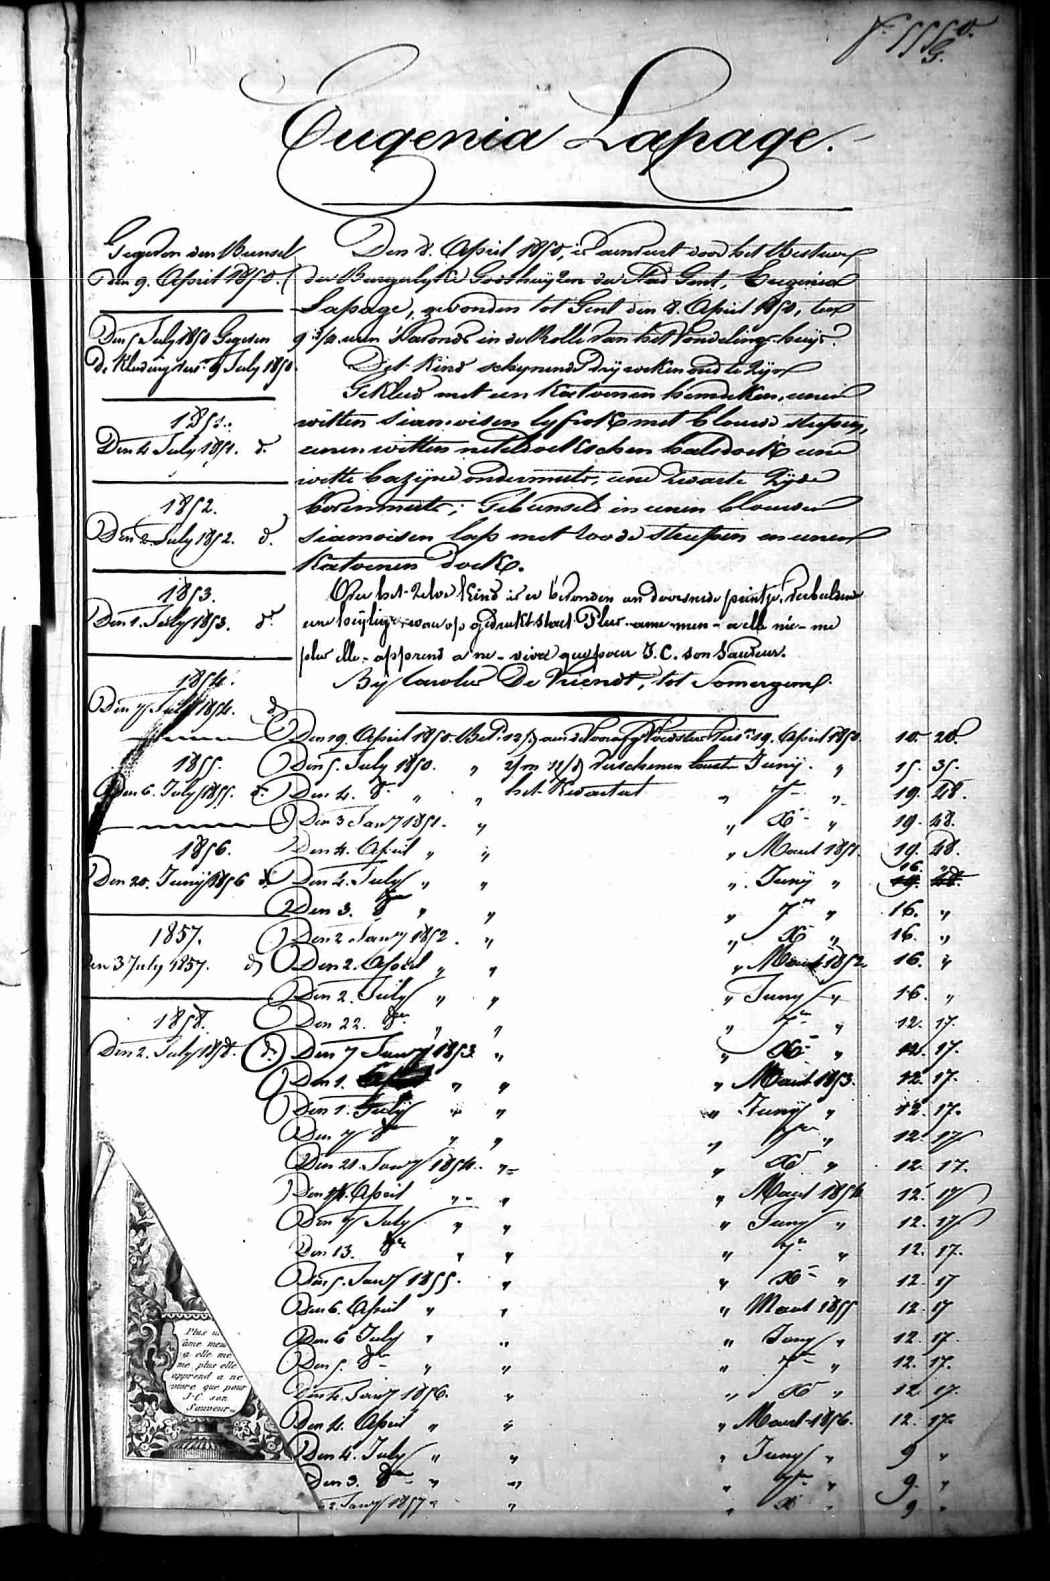 Eugenia Lapage.
Gegeven den Bunsel
den 9. April 1850.
Den 5 July 1850 Gegeven
de Kleding 9 July 1850
1851.
Den 4 July 1851. d.
1852.
Den 2. July 1852. d.
1853.
Den 1. July 1853. d.
1854.
Den 7 July 1854. d
1855.
Den 6. July 1855. d.
1856.
Den 20. Juny 1856 d.
1857.
den 3 July 1857. d
1858.
Den 2. July 1858. d.
Den 8. April 1850, is aenveert door het Bestuer
der Burgerlyke Godshuyzen der Stad Gent, Eugenia
Lapage, gevonden tot Gent den 8. April 1850, ten
9 3/4 uren 's avonds in de Rolle van het Vondelinge huys.
Dit kind schynende dry weken oud te zyn
Gekleed met een Katoenen hemdeken, eenen
witten siamoisen lyfrok met blauwe streepen,
eenen witten neteldoekschen halsdoek eene
witte bazyne ondermuts, eene zwarte zyde
bovenmuts; Gebunseld in eenen blauwen
siamoisen lap met roode streepen en eenen
Katoenen doek.
Op het zelve Kind is er bevonden een doorsnede printje, verbeeldende
eene heylige, waer op gedrukt staet Plus - ame men - a elle me - me
plus elle - apprend a ne - vivre que pour J.C. son Sauveur.
By Carolus De Vriendt, tot Somergem.
Den 19. April 1850. Bet. 12/3 aen de Voedster 19. April 1850. 10. 28.
Den 5. July 1850. " verschenen Juny. " 15. 35.
Den 4. 8bre " " het Kwartaet " 7bre " 19. 48.
Den 3 Janry 1851. " " Xbre " 19. 48.
Den 4. April " " " Maert 1851. 19. 48.
Den 4. July " " " Juny " 16. "
Den 3. 8bre " " " 7bre " 16. "
Den 2 Janry 1852. " " Xbre " 16. "
Den 2. April " " " Maert 1852 16. "
Den 2. July " " " Juny " 16. "
Den 22. 8bre " " " 7bre " 12. 17.
Den 7 Janry 1853 " " Xbre " 12. 17.
Den 1. April " " " Maert 1853. 12. 17.
Den 1. July " " " Juny " 12. 17.
Den 7 8bre " " " 7bre " 12. 17
Den 21 Janry 1854. " " Xbre " 12. 17.
Den 14. April " " " Maert 1854 12. 17
Den 7 July " " " Juny " 12. 17
Den 13. 8bre " " " 7bre " 12. 17.
Den 5. Janry 1855. " " Xbre " 12. 17
Den 6. April " " " Maert 1855 12. 17
Den 6 July " " " Juny " 12. 17.
Den 5. 8bre " " " 7bre " 12. 17.
Den 4. Janry 1856. " " Xbre " 12 17.
Den 4. April " " " Maert 1856. 12. 17.
Den 4. July " " " Juny " 9 "
Den 3. 8bre " " " 7bre " 9. "
2 Janry 1857 " " Xbre " 9 "
Plus
âme men
a elle me
me plus elle
apprend a ne
vivre que pour
J-C son
Sauveur